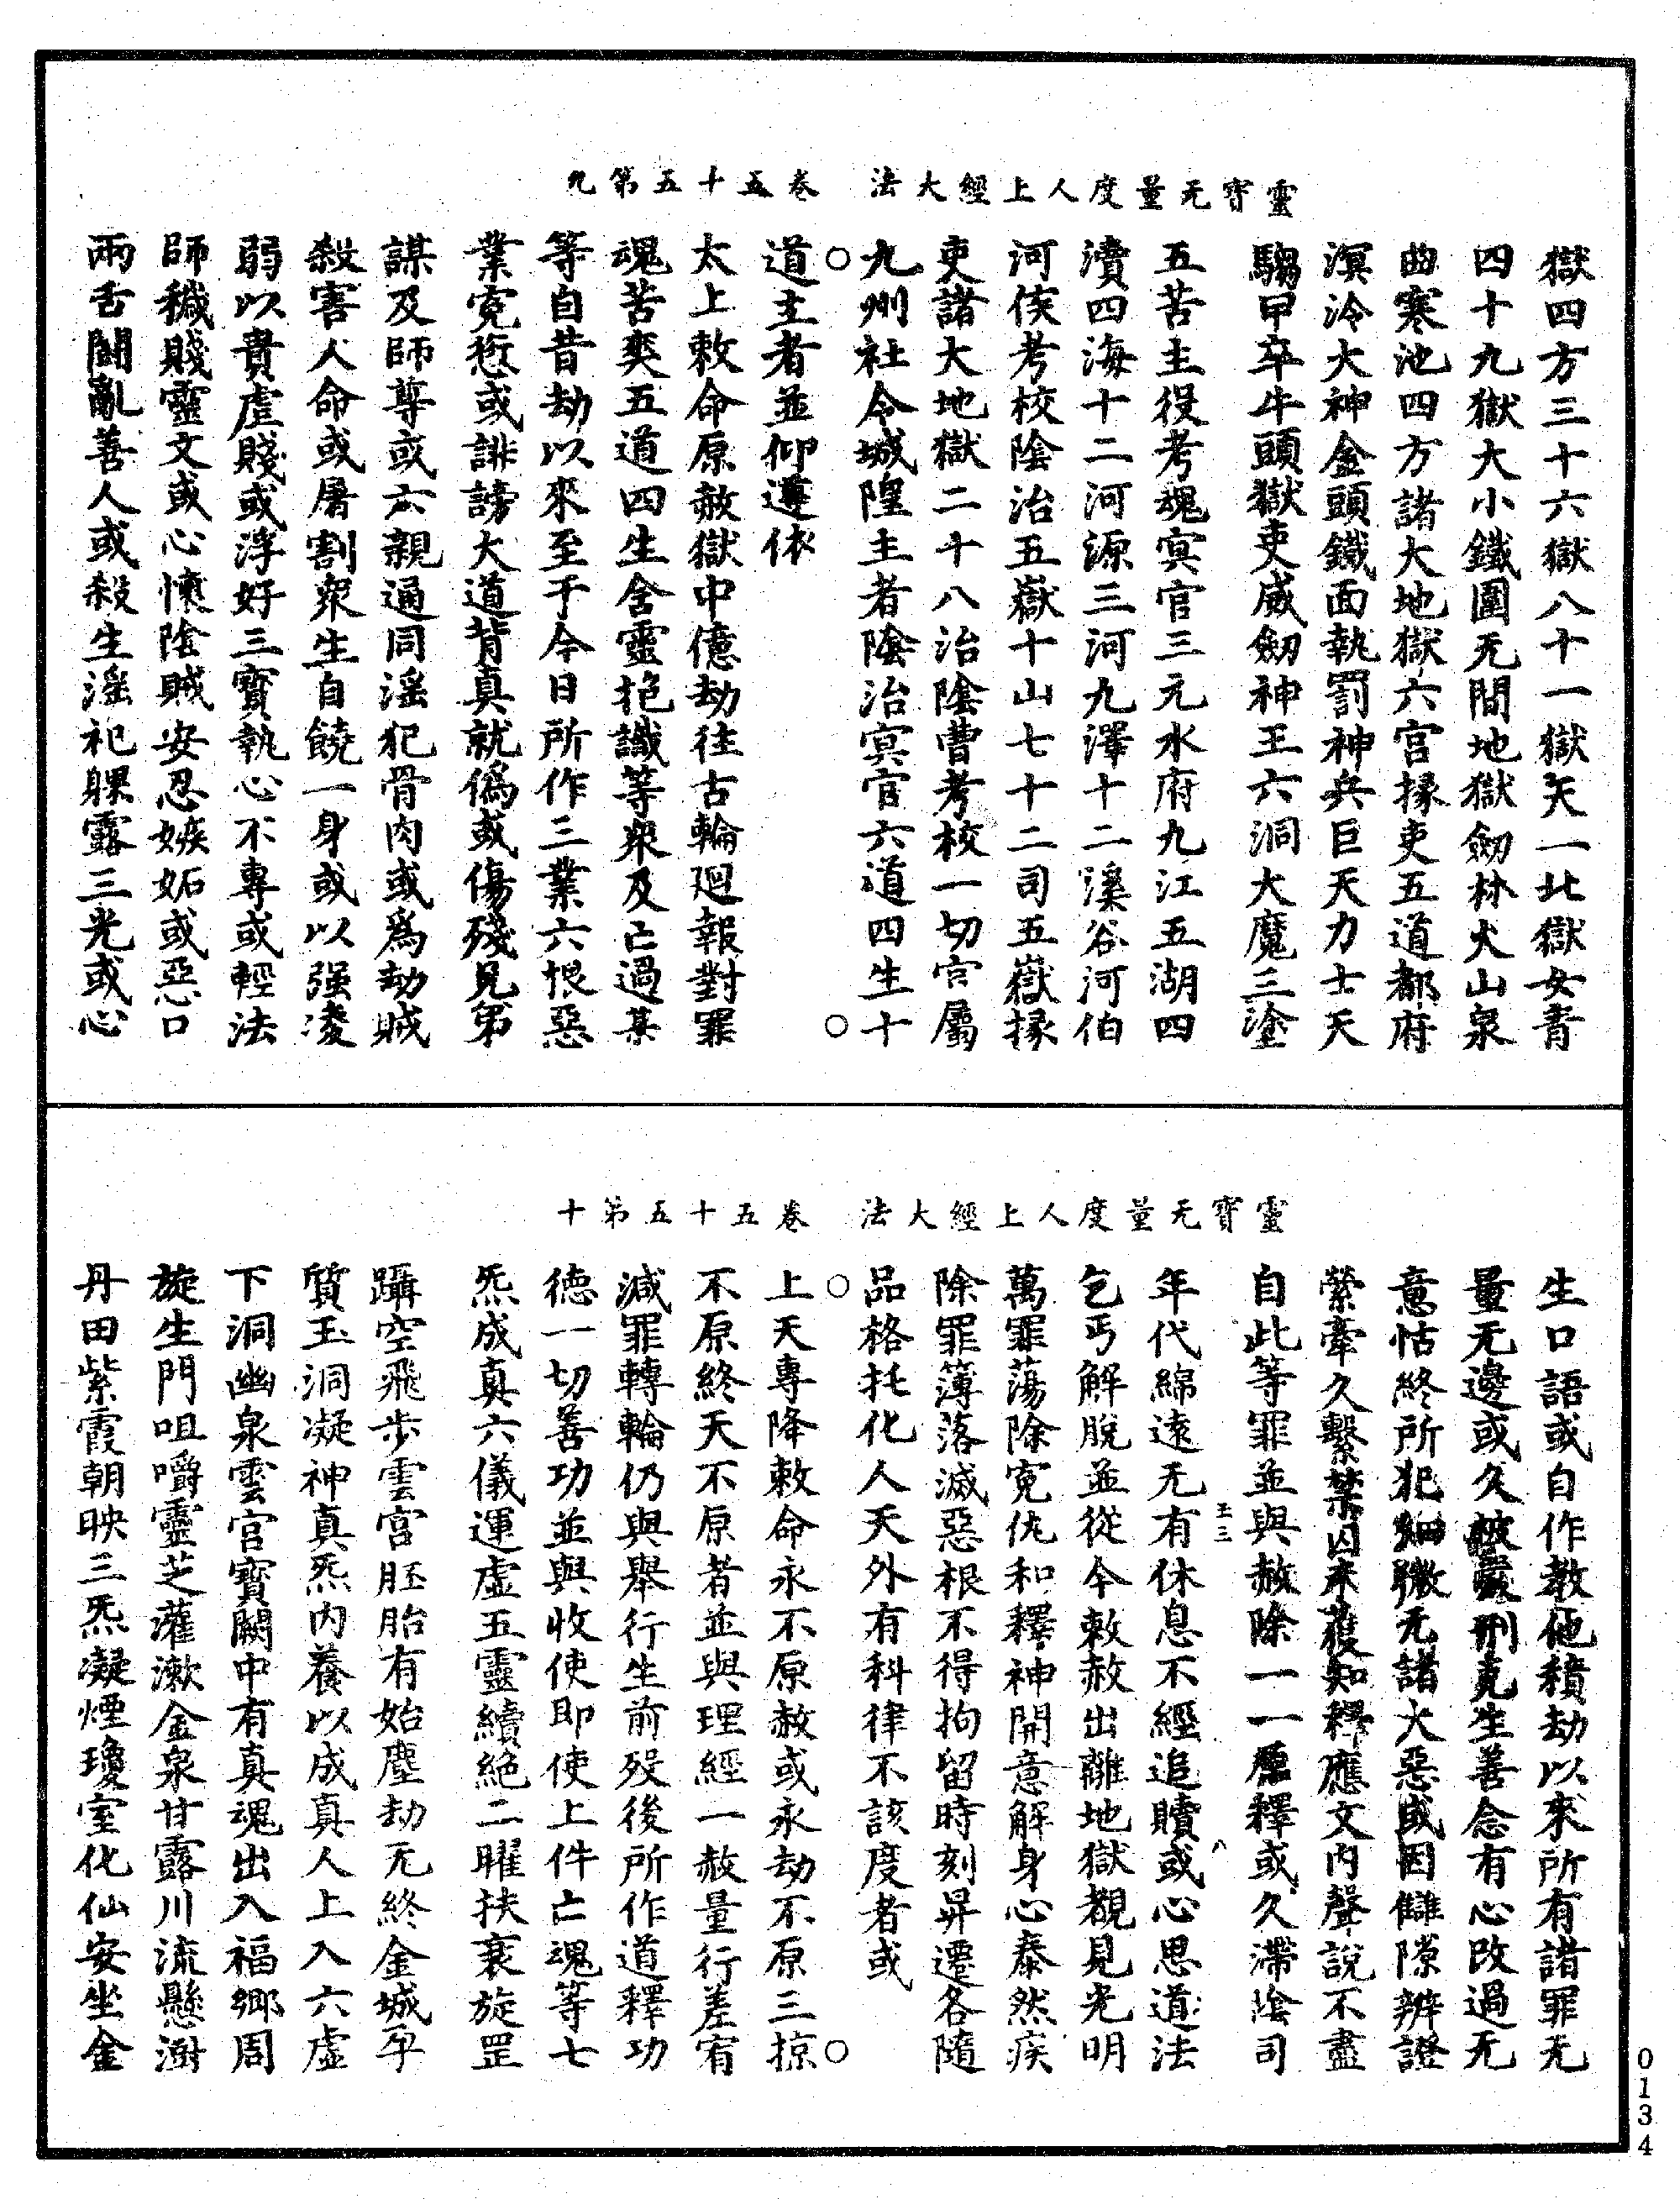 靈寶无量度人上經大法　卷五十五第九
獄四方三十六獄八十一獄天一北獄女青
四十九獄大小鐵圍无間地獄劒林火山泉
曲寒池四方諸大地獄六宫掾吏五道都府
溟泠大神金頭鐵面執罰神兵巨天力士天
騶甲卒牛頭獄吏威劒神王六洞大魔三塗
五苦主役考魂㝠官三元水府九江五湖四
瀆四海十二河源三河九澤十二溪谷河伯
河侯考校陰治五嶽十山七十二司五嶽掾
吏諸大地獄二十八治陰曹考校一切官屬
九州社令城隍主者陰治㝠官六道四生十
○道主者並仰遵依○
太上敕命原赦獄中億劫往古輪廻報對罪
魂苦爽五道四生含靈抱識等衆及亡過某
等自昔劫以來至于今日所作三業六根惡
業寃愆或誹謗大道背真就僞或傷殘兄弟
謀及師尊或六親通同滛犯骨肉或爲劫賊
殺害人命或屠割衆生自饒一身或以强凌
弱以貴虐賤或浮好三寶執心不專或輕法
師穢賤靈文或心懷陰賊安忍嫉妬或惡口
兩舌鬪亂善人或殺生滛祀躶露三光或心
靈寶无量度人上經大法　卷五十五第十
生口語或自作教他積劫以來所有諸罪无
量无邊或久被嚴刑克生善念有心改過无
意怙終所犯細微无諸大惡或因讎隙辨證
縈牽久繫禁囚未獲知釋應文内聲説不盡
自此等罪並與赦除一一原釋或久滯陰司
年代綿遠无有休息不經追贖或心思道法
乞丐解脫並從今敕赦出離地獄覩見光明
萬罪蕩除寃仇和釋神開意解身心泰然疾
除罪簿落滅惡根不得拘留時刻昇遷各隨
品格托化人天外有科律不該度者或
○上天專降敕命永不原赦或永劫不原三掠○
不原終天不原者並與理經一赦量行差宥
減罪轉輪仍與舉行生前殁後所作道釋功
德一切善功並與收使即使上件亡魂等七
炁成真六儀運虚五靈續絶二曜扶衰旋罡
躡空飛步雲宫胚胎有始塵劫无終金城平
質玉洞凝神真炁内養以成真人上入六虚
下洞幽泉雲宫寶闕中有真魂出入福鄉周
旋生門咀嚼靈芝灌漱金泉甘露川流懸澍
丹田紫霞朝映三炁凝煙瓊室化仙安坐金
0134